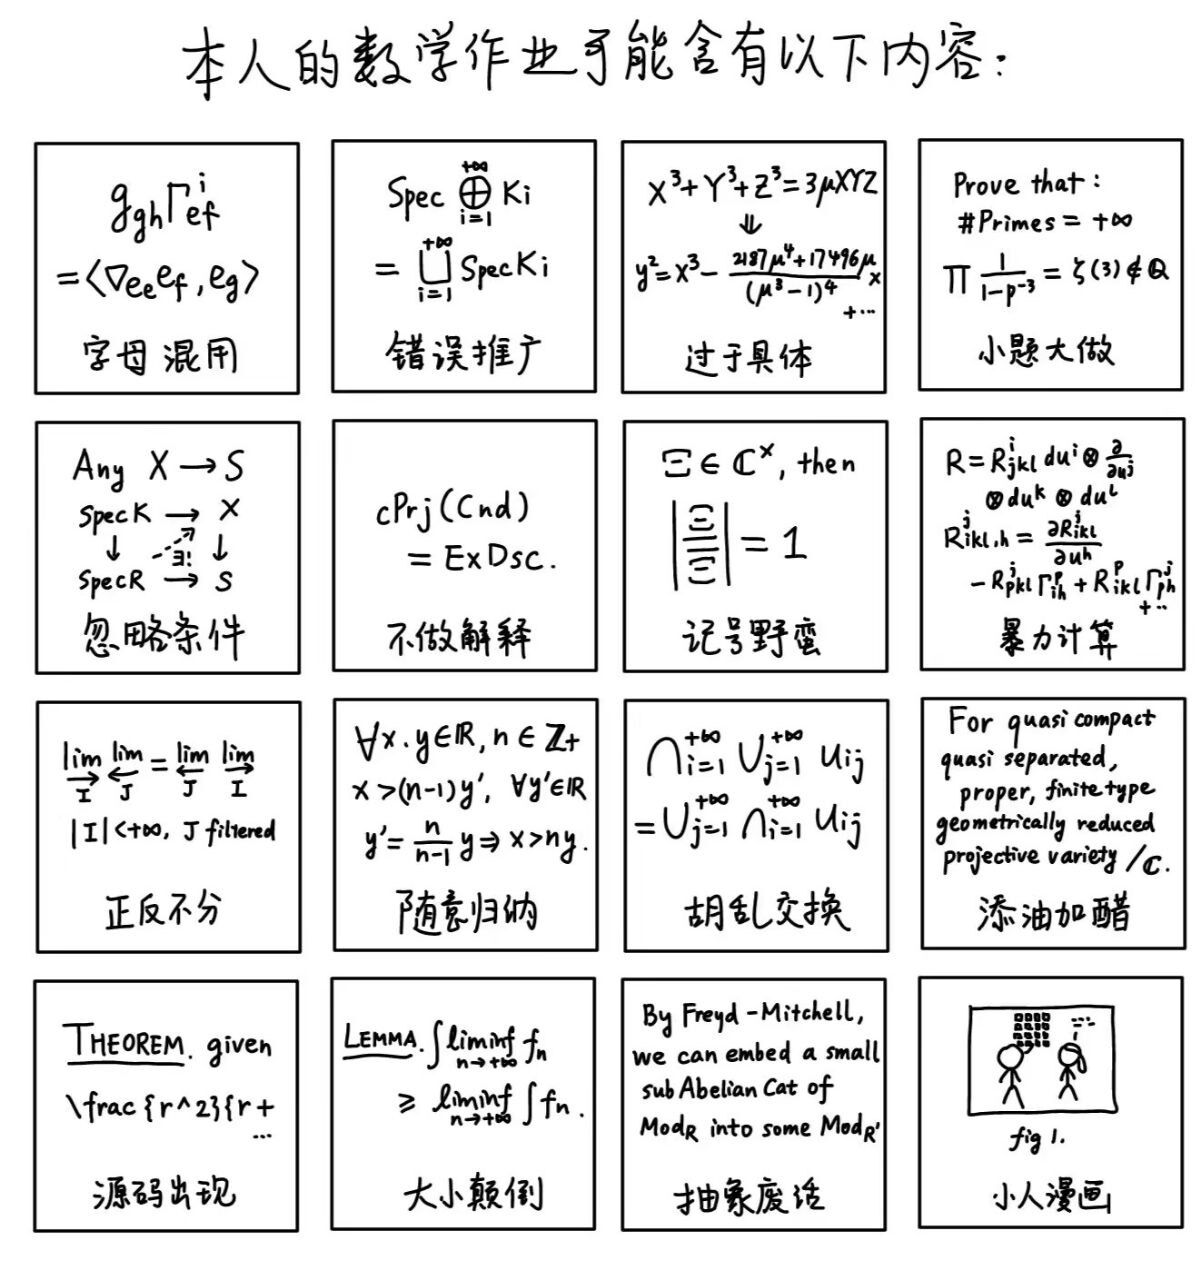 本人的数学作业可能含有以下内容：
g_{gh}Γ^i_{ef}
=<∇_{e_e}e_f, e_g>
字母混用
Spec ⊕_{i=1}^{+∞} Ki
= ⊔_{i=1}^{+∞} SpecKi
错误推广
X³+Y³+Z³=3μXYZ
⇓
y²=x³-\frac{2187μ⁴+17496μ}{(μ³-1)⁴}x
+...
过于具体
Prove that:
#Primes = +∞
∏ \frac{1}{1-p^{-3}} = ζ(3)∉Q
小题大做
Any X → S
SpecK → X
↓ ∃! ↓
SpecR → S
忽略条件
cPrj(Cnd)
= ExDsc.
不做解释
Ξ ∈ ℂ^×, then
|\frac{Ξ}{\overline{Ξ}}| = 1
记号野蛮
R=R^i_{jkl} du^i⊗\frac{∂}{∂u^j}
⊗du^k⊗du^l
R^j_{ikl,h} = \frac{∂R^j_{ikl}}{∂u^h}
-R^j_{pkl}Γ^p_{ih}+R^p_{ikl}Γ^j_{ph}
+...
暴力计算
lim→_I lim←_J = lim←_J lim→_I
|I|<+∞, J filtered
正反不分
∀x.y∈ℝ, n∈ℤ+
x>(n-1)y', ∀y'∈ℝ
y'=\frac{n}{n-1}y⇒x>ny.
随意归纳
∩_{i=1}^{+∞} ∪_{j=1}^{+∞} Uij
=∪_{j=1}^{+∞} ∩_{i=1}^{+∞} Uij
胡乱交换
For quasi compact
quasi separated,
proper, finite type
geometrically reduced
projective variety /ℂ.
添油加醋
THEOREM. given
\frac{r^2}{r+
...
源码出现
LEMMA. ∫liminf_{n→+∞} fn
≥ liminf_{n→+∞} ∫fn.
大小颠倒
By Freyd-Mitchell,
we can embed a small
sub Abelian Cat of
Mod_R into some Mod_R'
抽象废话
fig 1.
小人漫画